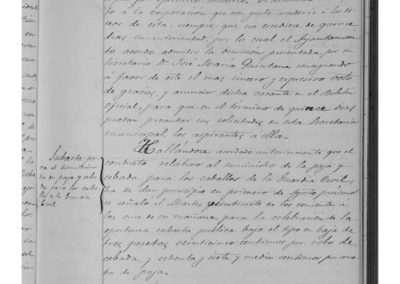 to á la corporacion que con gusto accederia á los de-
seos de esta, siempre que no escediese de quince
dias su interinidad, por lo cual el Ayuntamien-
to acordó admitir la dimision presentada por su
Secretario D. José Maria Quintana consignando
á favor de este el mas sincero y espresivo voto
de gracias, y anunciar dicha vacante en el Boletin
oficial, para que en el término de quince dias
puedan presentar sus solicitudes en esta Secretaria
municipal, los aspirantes á ella.
Subasta pa-
ra el suministro
de paja y ceba-
da para los caba-
llos de la Guardia
Civil
Hallándose acordado anteriormente que el
contrato relativo al suministro de la paja y
cebada para los caballos de la Guardia Civil,
ha de dar principio en primero de Agosto próximo
se señaló el Martes veintisiete en los corrientes á
las once de su mañana para la celebracion de la
oportuna subasta publica bajo el tipo en baja de
tres pesetas veinticinco centimos por robo de
cebada, y ochenta y siete y medio centimos por arro-
ba de paja.